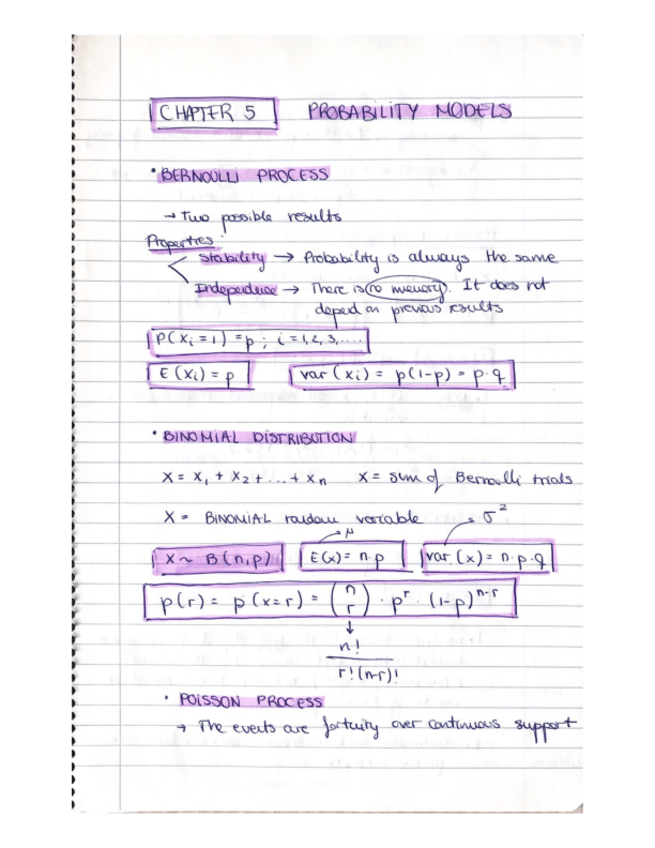 CHAPTER 5 PROBABILITY MODELS
• BERNOULLI PROCESS
→ Two possible results
Properties
Stability → Probability is always the same
Independence → There is no memory. It does not
depend on previous results
P(Xi = 1) = p ; i = 1, 2, 3, ....
E(Xi) = p var(Xi) = p(1-p) = p·q
• BINOMIAL DISTRIBUTION
X = X₁ + X₂ + ... + Xn X = sum of Bernoulli trials
X = BINOMIAL random variable → σ²
→ μ
X ~ B(n,p) E(x) = n·p var(x) = n·p·q
p(r) = p(x=r) = (n r) · pʳ · (1-p)ⁿ⁻ʳ
↓
n!
r!(n-r)!
• POISSON PROCESS
→ The events are fortuity over continuous support